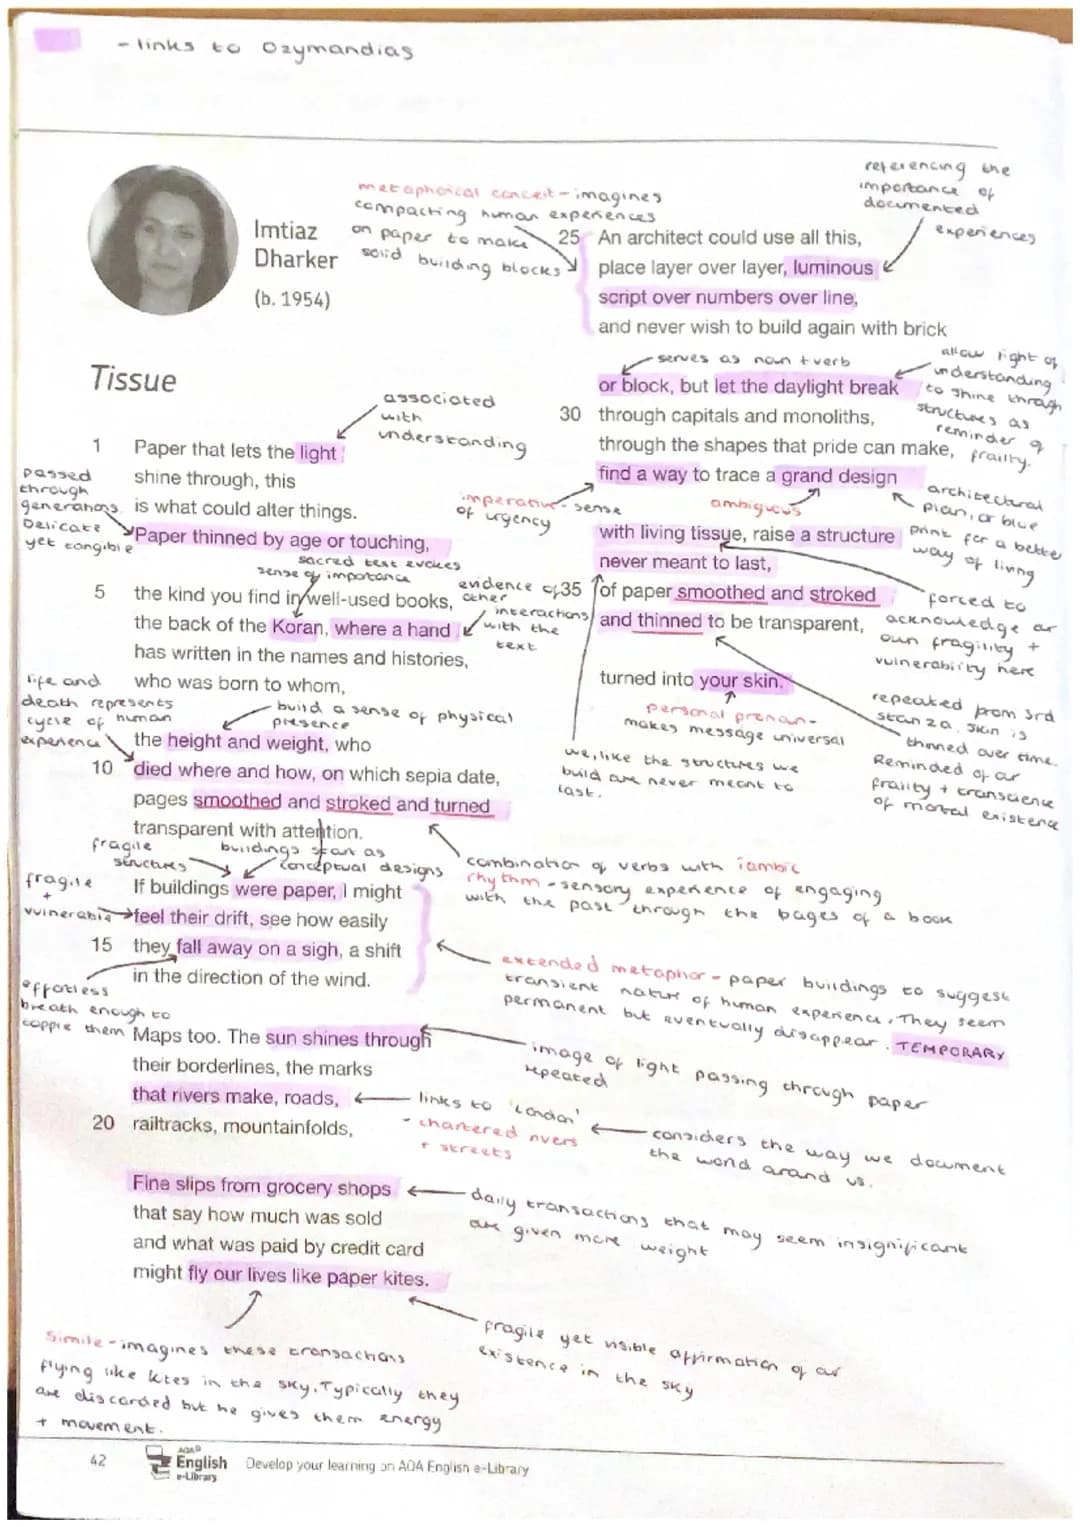 - links to Ozymandias
Imtiaz
Dharker
(b. 1954)
Tissue
metaphorical conceit - imagines
compacting human experiences
on paper to make
solid building blocks
referencing the
importance of
documented
experiences
associated
with
understanding
1 Paper that lets the light
shine through, this
is what could alter things.
Paper thinned by age or touching,
passed
through
generations.
Delicate
yet tangible
sacred text evokes
sense of importance
5 the kind you find in well-used books,
the back of the Koran, where a hand
has written in the names and histories,
who was born to whom,
evidence of
other
interactions
with the
text
life and
death represents
cycle of human
experience
build a sense of physical
presence
the height and weight, who
10 died where and how, on which sepia date,
pages smoothed and stroked and turned
transparent with attention.
fragile
structures
buildings start as
conceptual designs
combination of verbs with iambic
rhythm - sensory experience of engaging
with the past through the pages of a book
fragile
+
vulnerable
If buildings were paper, I might
feel their drift, see how easily
15 they fall away on a sigh, a shift
in the direction of the wind.
effortless
breath enough to
topple them
extended metaphor - paper buildings to suggest
transient nature of human experience. They seem
permanent but eventually disappear. TEMPORARY
Maps too. The sun shines through
their borderlines, the marks
that rivers make, roads,
20 railtracks, mountainfolds,
image of light passing through paper
repeated
links to 'London'
- chartered rivers
+ streets
considers the way we document
the world around us.
Fine slips from grocery shops
that say how much was sold
and what was paid by credit card
might fly our lives like paper kites.
daily transactions that may seem insignificant
are given more weight
Simile - imagines these transactions
flying like kites in the sky. Typically they
are discarded but he gives them energy
+ movement.
fragile yet visible affirmation of our
existence in the sky
25 An architect could use all this,
place layer over layer, luminous
script over numbers over line,
and never wish to build again with brick
serves as noun + verb
allow light of
understanding
to shine through
structures as
reminder of
frailty.
or block, but let the daylight break
30 through capitals and monoliths,
through the shapes that pride can make,
find a way to trace a grand design
imperative - sense
of urgency
ambiguous
architectural
plan, or blue
print for a better
way of living
with living tissue, raise a structure
never meant to last,
35 of paper smoothed and stroked
and thinned to be transparent,
forced to
acknowledge our
own fragility +
vulnerability here
turned into your skin.
personal pronoun -
makes message universal
we, like the structures we
build are never meant to
last.
repeated from 3rd
stanza. Skin is
thinned over time.
Reminded of our
frailty + transcience
of mortal existence
42
AQA
English
e-Library
Develop your learning on AQA English e-Library